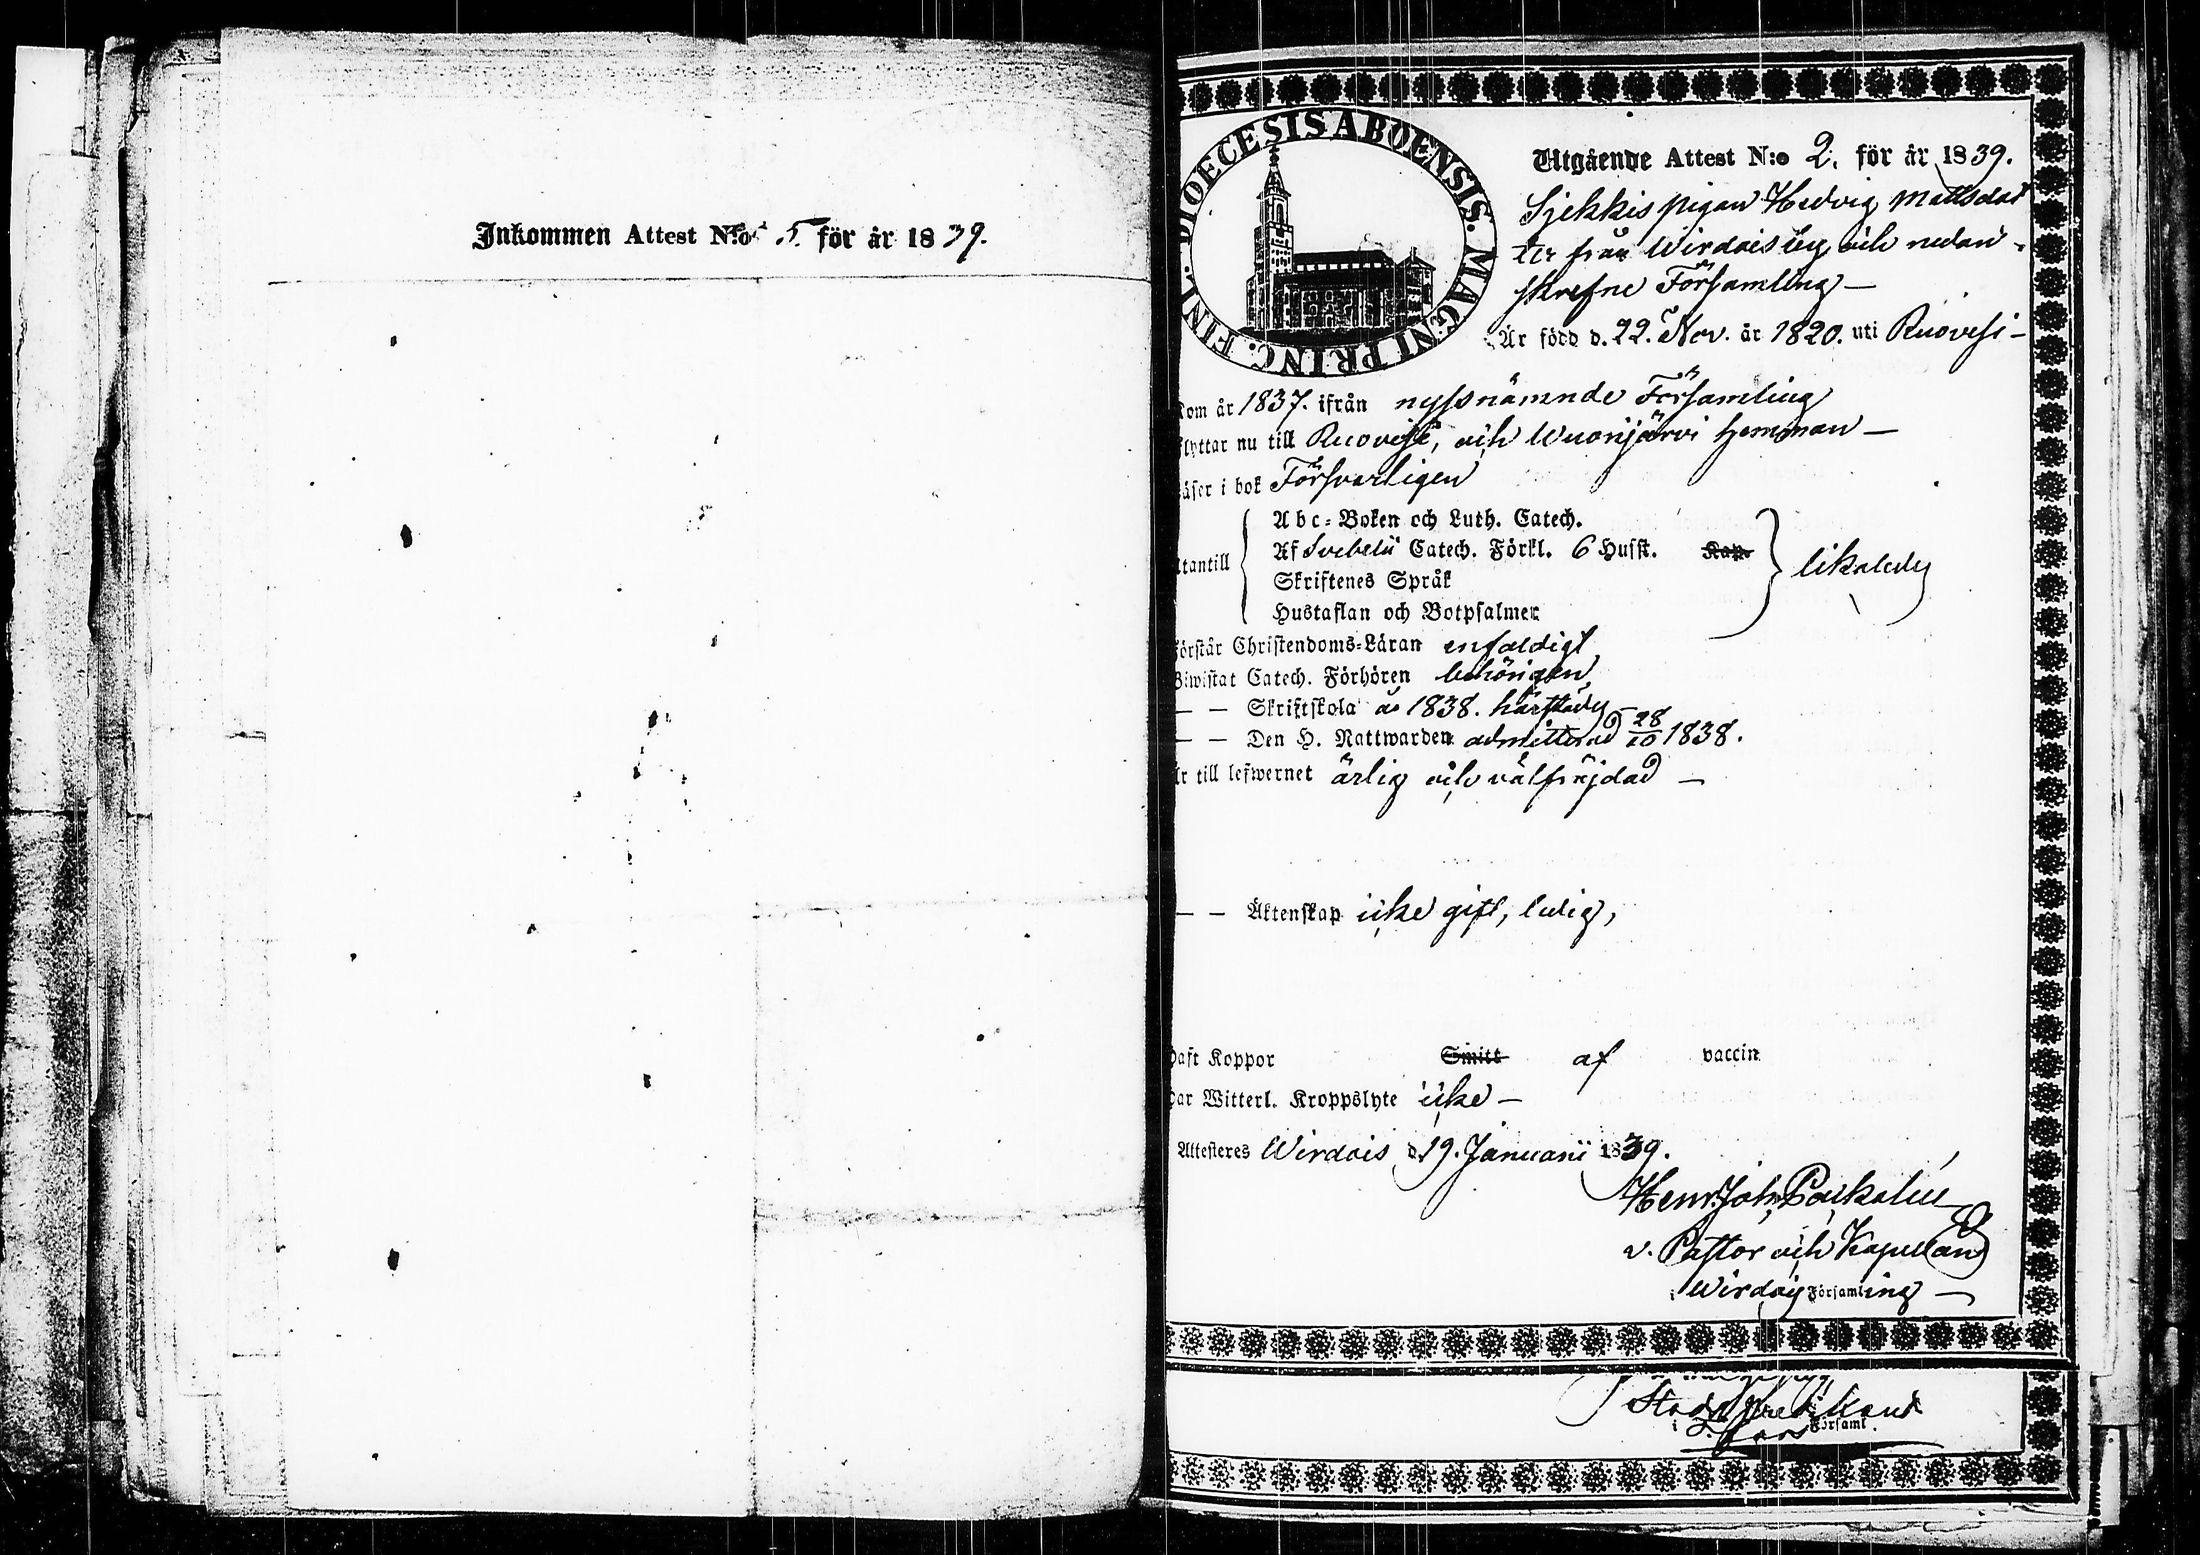 Inkommen Attest N:o 5. för år 1839.
DIOECESIS ABOENSIS. MAGNI PRINC. FINL.
Utgående Attest N:o 2. för år 1839.
Sjekkis pigan Hedvig Mattsdot
ter från Wirdois by och nedan-
skrefne Församling —
Är född d. 22. Nov. år 1820. uti Ruovesi —
Kom år 1837. ifrån nyssnämnde Församling
flyttar nu till Ruovesi, och Wuorijärvi hemman —
läser i bok Försvarligen
Abc-Boken och Luth. Catech.
utantill Af Svebelii Catech. Förkl. 6 Husst. Kap. likaledes
Skriftenes Språk
Hustaflan och Botpsalmer
förstår Christendoms-Läran enfaldigt
Biwistat Catech. Förhören behörigen
— — Skriftskola år 1838. härstädes
— — Den H. Nattwarden admitterad 28/10 1838.
Är till lefwernet ärlig och välfräjdad —
— — Äktenskap icke gift, ledig,
haft Koppor Smitt af vaccin
har Witterl. Kroppslyte icke —
Attesteres Wirdois d. 19. Januarii 1839.
Henr. Joh.
v. Pastor och Kapellan
i Wirdois Församling —
Stads Predikant
i Församl.